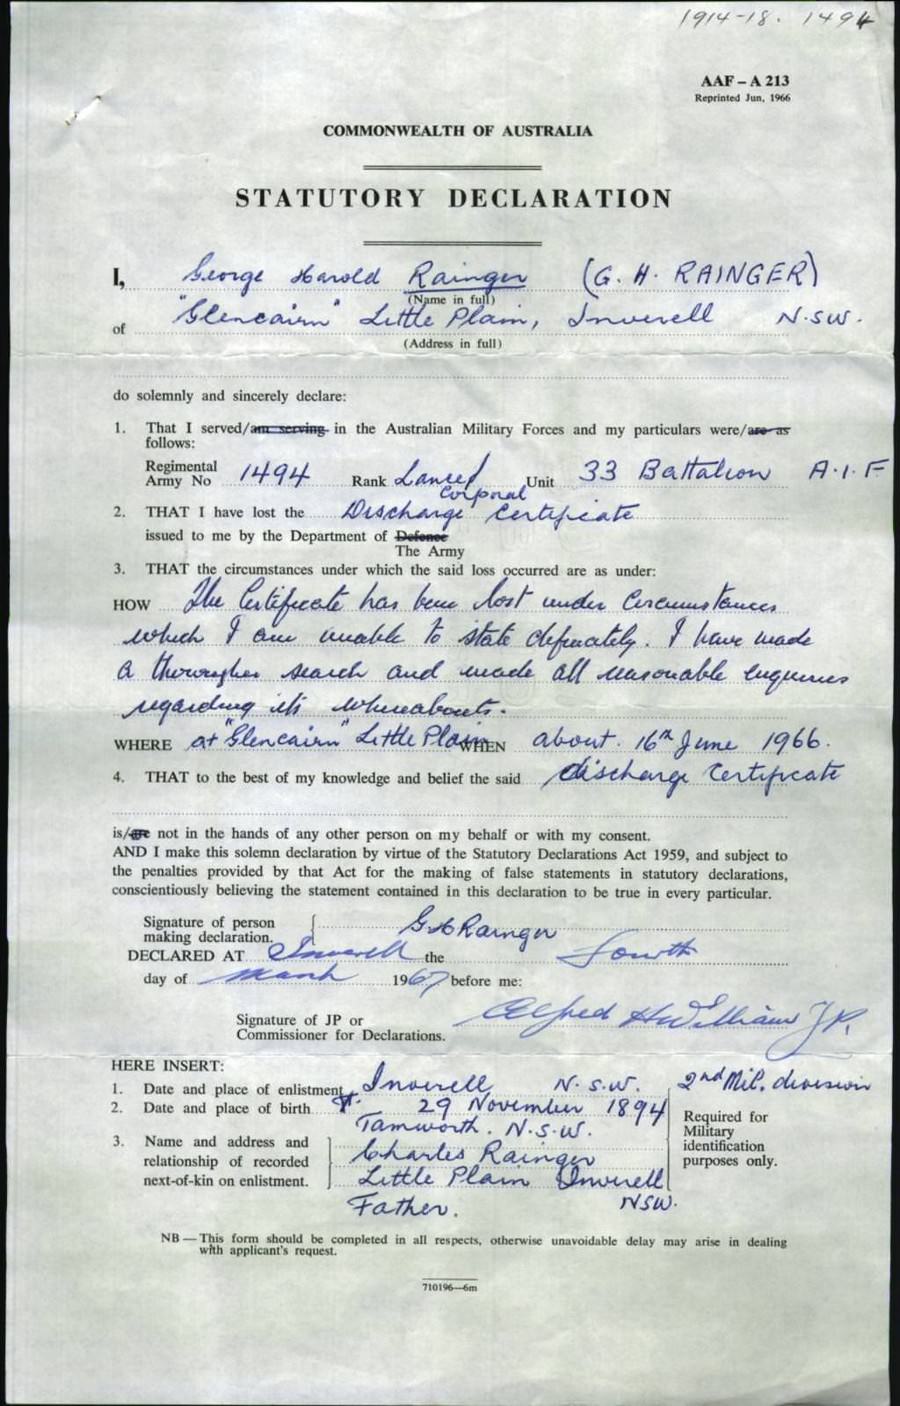 1914-18. 1494
AAF – A 213
Reprinted Jun, 1966
COMMONWEALTH OF AUSTRALIA
STATUTORY DECLARATION
I, George Harold Rainger (G. H. RAINGER)
(Name in full)
of "Glencairn" Little Plain, Inverell N.SW.
(Address in full)
do solemnly and sincerely declare:
1. That I served/am serving in the Australian Military Forces and my particulars were/are as
follows:
Regimental
Army No 1494 Rank Lance Unit 33 Battalion A.I.F
Corporal
2. THAT I have lost the Discharge Certificate
issued to me by the Department of Defence
The Army
3. THAT the circumstances under which the said loss occurred are as under:
HOW The Certificate has been lost under circumstances
which I am unable to state definately. I have made
a thorougher search and made all reasonable enquiries
regarding its whereabouts.
WHERE at "Glencairn" Little Plain WHEN about 16th June 1966.
4. THAT to the best of my knowledge and belief the said discharge Certificate
is/are not in the hands of any other person on my behalf or with my consent.
AND I make this solemn declaration by virtue of the Statutory Declarations Act 1959, and subject to
the penalties provided by that Act for the making of false statements in statutory declarations,
conscientiously believing the statement contained in this declaration to be true in every particular.
Signature of person
making declaration. G H Rainger
DECLARED AT Inverell the Fourth
day of March 1967 before me:
Signature of JP or
Commissioner for Declarations. Alfred H William JP.
HERE INSERT:
1. Date and place of enlistment Inverell N.S.W. 2nd Mil. division
2. Date and place of birth 29 November 1894
Tamworth. N.S.W.
3. Name and address and
relationship of recorded
next-of-kin on enlistment.
Charles Rainger
Little Plain Inverell
NSW.
Father.
Required for
Military
identification
purposes only.
NB — This form should be completed in all respects, otherwise unavoidable delay may arise in dealing
with applicant's request.
710196—6m